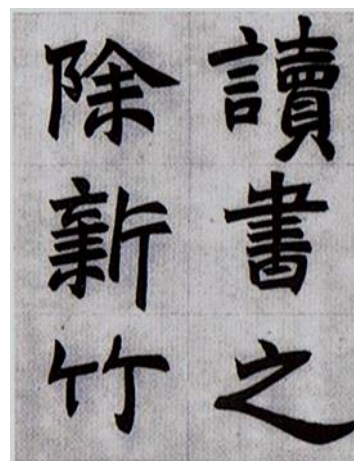 讀書之
除新竹